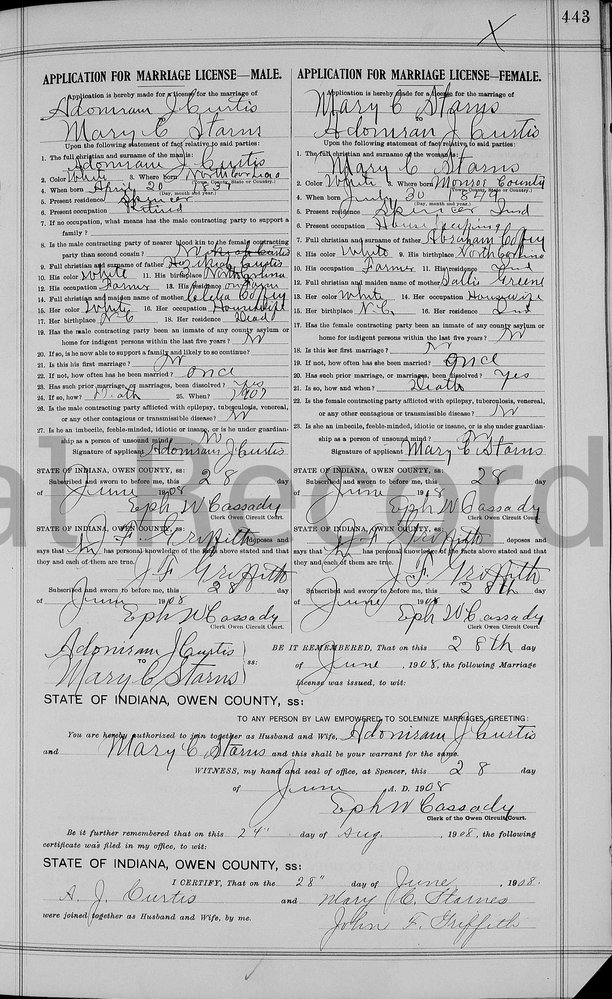 443
X
APPLICATION FOR MARRIAGE LICENSE—MALE.
Application is hereby made for a license for the marriage of
Adoniram J Curtis
TO
Mary C Starns
Upon the following statement of fact relative to said parties:
1. The full christian and surname of the man is:
Adoniram J. Curtis
2. Color White 3. Where born North Carolina
(Town, County, State or Country.)
4. When born April 20 1837
(Day, month and year.)
5. Present residence Spencer
6. Present occupation Retired
7. If no occupation, what means has the male contracting party to support a
family?
8. Is the male contracting party of nearer blood kin to the female contracting
party than second cousin? No
9. Full christian and surname of father Curtis
10. His color White 11. His birthplace North Carolina
12. His occupation Farmer 13. His residence on Farm
14. Full christian and surname of mother Celelia Coffey
15. Her color White 16. Her occupation Housewife
17. Her birthplace N.C 18. Her residence Dead
19. Has the male contracting party been an inmate of any county asylum or
home for indigent persons within the last five years? No
20. If so, is he now able to support a family and likely to so continue?
21. Is this his first marriage? No
22. If not, how often has he been married? once
23. Has such prior marriage, or marriages, been dissolved? Yes
24. If so, how? Death 25. When? 1907
26. Is the male contracting party afflicted with epilepsy, tuberculosis, venereal,
or any other contagious or transmissible disease? No
27. Is he an imbecile, feeble-minded, idiotic or insane, or is he under guardian-
ship as a person of unsound mind? No
Signature of applicant Adoniram J Curtis
STATE OF INDIANA, OWEN COUNTY, ss:
Subscribed and sworn to before me, this 28 day
of June 1908
Eph W Cassady
Clerk Owen Circuit Court.
STATE OF INDIANA, OWEN COUNTY, ss:
J. F. Griffith deposes and
says that he has personal knowledge of the facts above stated and that
they and each of them are true.
J F Griffith
Subscribed and sworn to before me, this 28 day
of June 1908
Eph W Cassady
Clerk Owen Circuit Court.
APPLICATION FOR MARRIAGE LICENSE—FEMALE.
Application is hereby made for a license for the marriage of
Mary C Starns
TO
Adoniram J Curtis
Upon the following statement of fact relative to said parties:
1. The full christian and surname of the woman is:
Mary C Starns
2. Color White 3. Where born Monroe County
(Town, County, State or Country.)
4. When born July 30 1844
(Day, month and year.)
5. Present residence Spencer Ind
6. Present occupation House keeping
7. Full christian and surname of father Abraham Coffey
8. His color White 9. His birthplace North Carolina
10. His occupation Farmer 11. His residence Ind
12. Full christian and maiden name of mother Sallie Greene
13. Her color White 14. Her occupation Housewife
15. Her birthplace N.C. 16. Her residence Ind
17. Has the female contracting party been an inmate of any county asylum or
home for indigent persons within the last five years? No
18. Is this her first marriage? No
19. If not, how often has she been married? once
20. Has such prior marriage, or marriages, been dissolved? Yes
21. If so, how and when? Death
22. Is the female contracting party afflicted with epilepsy, tuberculosis, venereal,
or any other contagious or transmissible disease? No
23. Is she an imbecile, feeble-minded, idiotic or insane, or is she under guardian-
ship as a person of unsound mind? No
Signature of applicant Mary C Starns
STATE OF INDIANA, OWEN COUNTY, ss:
Subscribed and sworn to before me, this 28 day
of June 1908
Eph W Cassady
Clerk Owen Circuit Court.
STATE OF INDIANA, OWEN COUNTY, ss:
J F Griffith deposes and
says that he has personal knowledge of the facts above stated and that
they and each of them are true.
J F Griffith
Subscribed and sworn to before me, this 28th day
of June 1908
Eph W Cassady
Clerk Owen Circuit Court.
al Record
Adoniram J Curtis
TO
Mary C Starns
ss:
BE IT REMEMBERED, That on this 28th day
of June, 1908, the following Marriage
License was issued, to wit:
STATE OF INDIANA, OWEN COUNTY, ss:
TO ANY PERSON BY LAW EMPOWERED TO SOLEMNIZE MARRIAGES, GREETING:
You are hereby authorized to join together as Husband and Wife, Adoniram J Curtis
and Mary C. Starns and this shall be your warrant for the same.
WITNESS, my hand and seal of office, at Spencer, this 28 day
of June A. D. 1908
Eph W Cassady
Clerk of the Owen Circuit Court.
Be it further remembered that on this 24" day of Aug. 1908, the following
certificate was filed in my office, to wit:
STATE OF INDIANA, OWEN COUNTY, ss:
I CERTIFY, That on the 28" day of June, 1908.
A. J. Curtis and Mary C. Starnes
were joined together as Husband and Wife, by me.
John F. Griffith